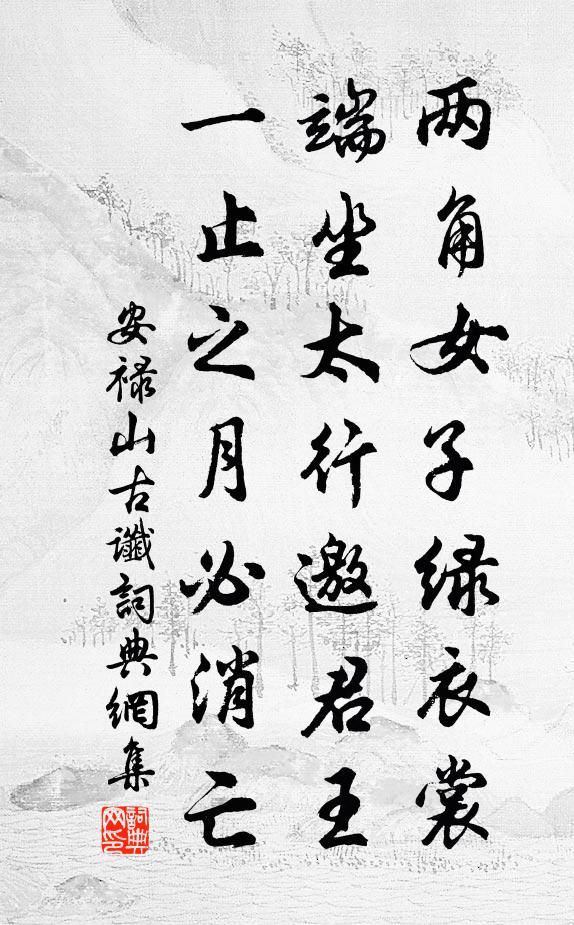 两角女子绿衣裳
端坐太行邀君王
一止之月必消亡
安禄山古讖詞典網集
詞典
网印